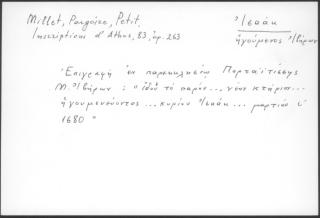 Millet, Pargoire, Petit.
Inscriptions d'Athos, 83, ἀρ. 263
Ἰσαάκ
ἡγούμενος Ἰβήρων
Ἐπιγραφὴ ἐν παρεκκλησίῳ Πορταϊτίσσης
Μ. Ἰβήρων : "ἰδοὺ τὸ παρόν... νέον κτήριον...
ἡγουμενεύοντος... κυρίου Ἰσαάκ... μαρτίου
1680"